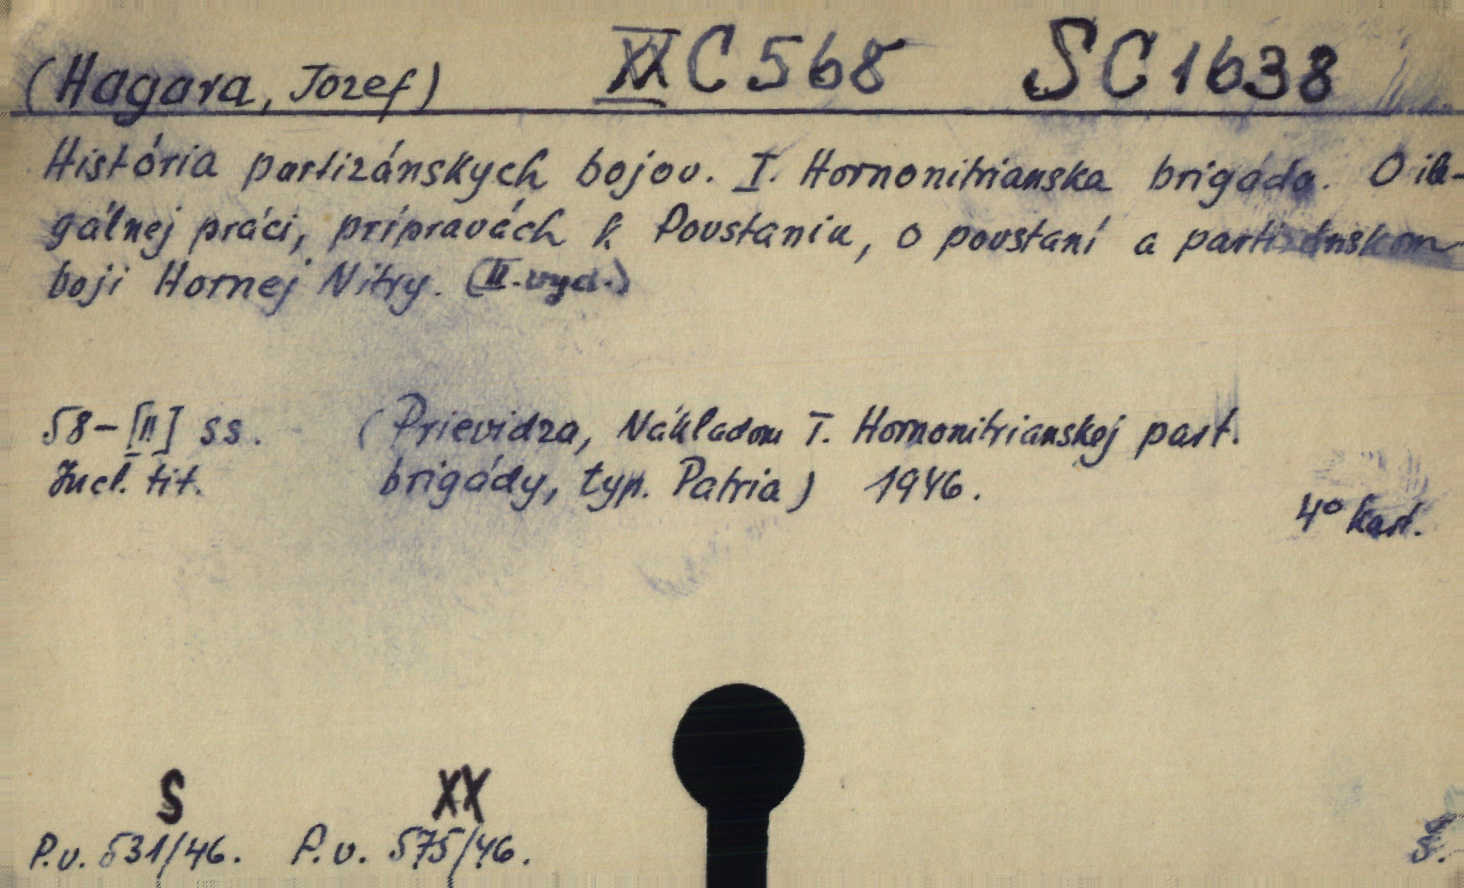 (Hagara, Jozef) XX C 568 SC 1638
História partizánskych bojov. I. Hornonitrianska brigáda. O ile-
gálnej práci, prípravách k Povstaniu, o povstaní a partizánskom
boji Hornej Nitry. (II. vyd.)
58-[II] ss. (Prievidza, Nákladom I. Hornonitrianskej part.
Incl. tit. brigády, typ. Patria) 1946.
4° kart.
S XX
P.v. 531/46. P.v. 575/46.
Š.